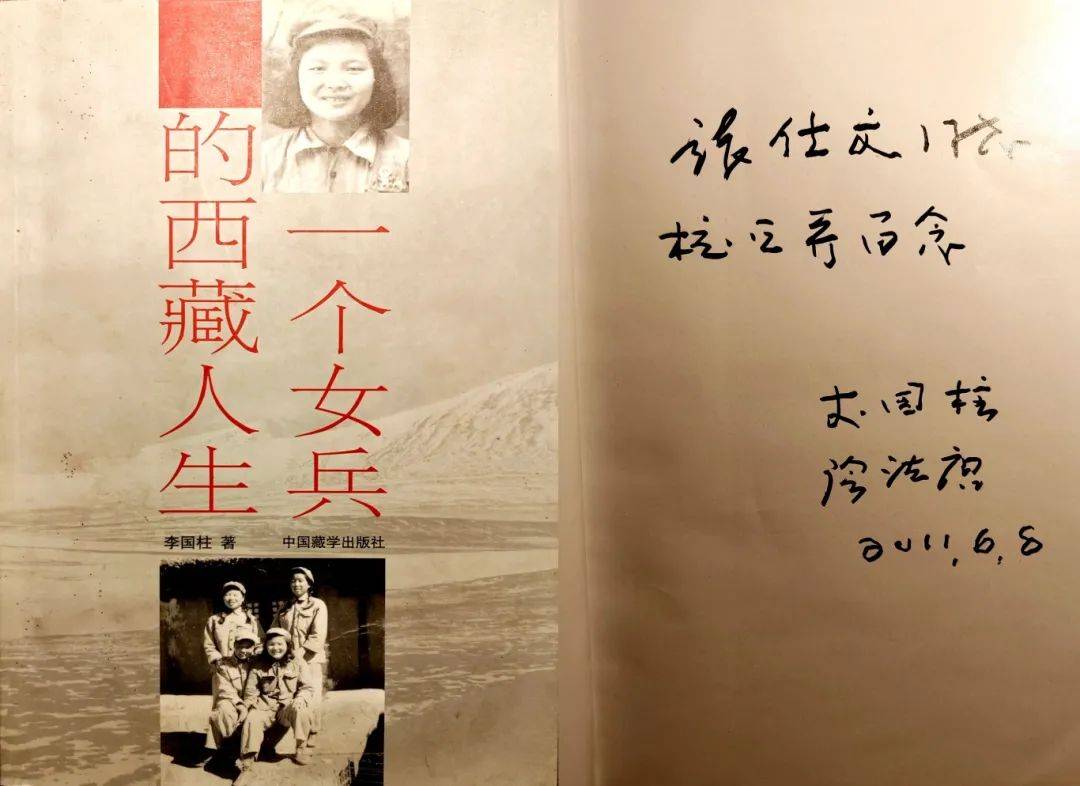 一个女兵
的西藏人生
李国柱 著
中国藏学出版社
张仕文同志
指正并留念
李国柱
阴法唐
2011,6,8